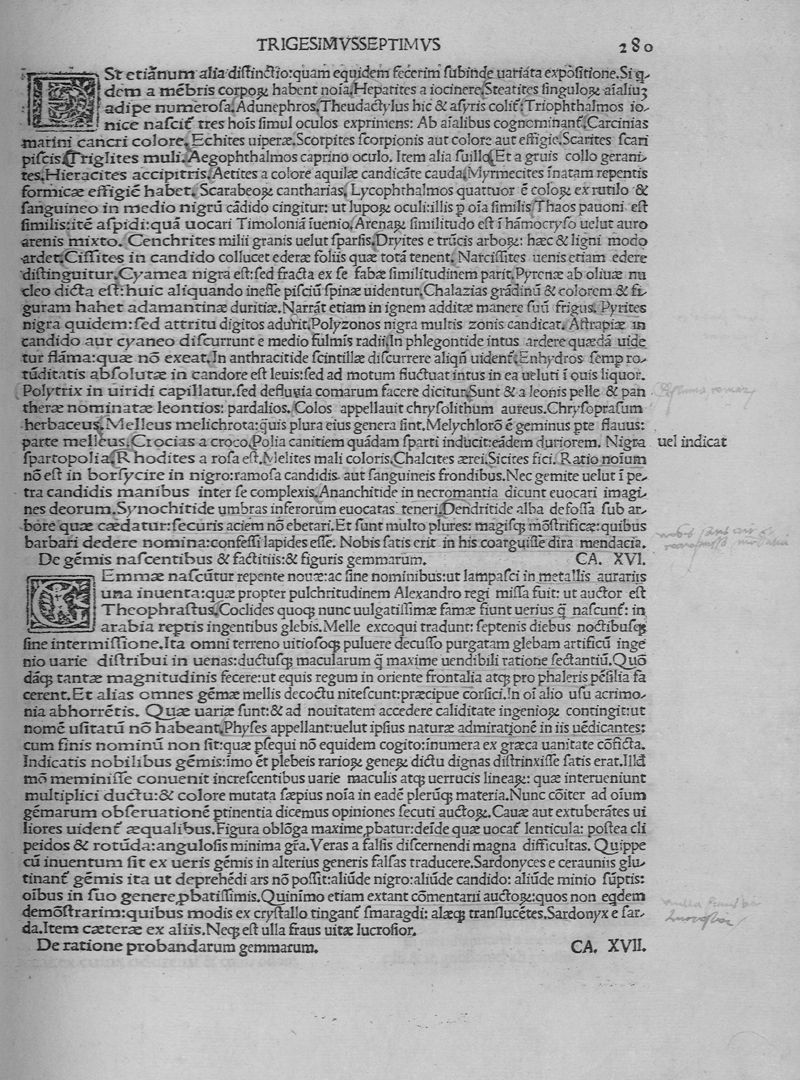 TRIGESIMVSSEPTIMVS 280
ESt etiãnum alia diſtinctio:quam equidem fecerim ſubinde uariata expoſitione.Siq̃
dem a mẽbris corpoꝝ habent noĩa.Hepatites a iocinere.Steatites ſinguloꝝ aĩaliũ
adipe numeroſa.Adunephros.Theudactylus hic & aſyris colit᷑.Triophthalmos io⸗
nice naſcit᷑ tres hoĩs ſimul oculos exprimens: Ab aĩalibus cognominant᷑.Carcinias
marini cancri colore.Echites uiperæ.Scorpites ſcorpionis aut colore aut effigie.Scarites ſcari
piſcis.Triglites muli.Aegophthalmos caprino oculo. Item alia ſuillo.Et a gruis collo gerani⸗
tes.Hieracites accipitris.Aetites a colore aquilæ candicãte cauda.Myrmecites ĩnatam repentis
formicæ effigiẽ habet. Scarabeoꝝ cantharias. Lycophthalmos quattuor ẽ coloꝝ ex rutilo &
ſanguineo in medio nigrũ cãdido cingitur: ut lupoꝝ oculi:illis ꝑ oĩa ſimilis.Thaos pauoni eſt
ſimilis:itẽ aſpidi:quã uocari Timoloniã ĩuenio.Arenaꝝ ſimilitudo eſt ĩ hãmocryſo uelut auro
arenis mixto. Cenchrites milii granis uelut ſparſis.Dryites e trũcis arboꝝ: hæc & ligni modo
ardet.Ciſſites in candido collucet ederæ foliis quæ totã tenent. Narciſſites uenis etiam edere
diſtinguitur.Cyamea nigra eſt:ſed fracta ex ſe fabæ ſimilitudinem parit.Pyrenæ ab oliuæ nu
cleo dicta eſt:huic aliquando ineſſe piſciũ ſpinæ uidentur.Chalazias grãdinũ & colorem & fi⸗
guram habet adamantinæ duritiæ.Narrãt etiam in ignem additæ manere ſuũ frigus. Pyrites
nigra quidem:ſed attritu digitos adurit.Polyzonos nigra multis zonis candicat. Aſtrapiæ in
candido aur cyaneo diſcurrunt e medio fulmis radii.In phlegontide intus ardere quædã uide
tur flãma:quæ nõ exeat.In anthracitide ſcintillæ diſcurrere aliqñ uident᷑.Enhydros ſemp ro⸗
tũditatis abſolutæ in candore eſt leuis:ſed ad motum fluctuat intus in ea ueluti ĩ ouis liquor.
Polytrix in uiridi capillatur.ſed defluuia comarum facere dicitur.Sunt & a leonis pelle & pan
theræ nominatæ leontios: pardalios. Colos appellauit chryſolithum aureus.Chryſopraſum
herbaceus.Melleus melichrota:quis plura eius genera ſint.Melychlorõ ẽ geminus pte flauus:
parte melleus.Crocias a croco.Polia canitiem quãdam ſparti inducit:eãdem duriorem. Nigra uel indicat
ſpartopolia.Rhodites a roſa eſt.Melites mali coloris.Chalcites ærei.Sicites fici. Ratio noĩum
nõ eſt in borſycire in nigro:ramoſa candidis aut ſanguineis frondibus.Nec gemite uelut ĩ pe⸗
tra candidis manibus inter ſe complexis.Ananchitide in necromantia dicunt euocari imagi
nes deorum.Synochitide umbras inferorum euocatas teneri.Dendritide alba defoſſa ſub ar⸗
bore quæ cædatur:ſecuris aciem nõ ebetari.Et ſunt multo plures: magiſqꝫ mõſtrificæ:quibus
barbari dedere nomina:confeſſi lapides eſſe. Nobis ſatis erit in his coarguiſſe dira mendacia.
De gẽmis naſcentibus & factitiis:& figuris gemmarum. CA. XVI.
GEmmæ naſcũtur repente nouæ:ac ſine nominibus:ut lampſaci in metallis aurariis
una inuenta:quæ propter pulchritudinem Alexandro regi miſſa fuit: ut auctor eſt
Theophraſtus.Coclides quoqꝫ nunc uulgatiſſimæ famæ fiunt uerius q̃ naſcunt᷑: in
arabia reptis ingentibus glebis. Melle excoqui tradunt: ſeptenis diebus noctibuſqꝫ
ſine intermiſſione.Ita omni terreno uitioſoqꝫ puluere decuſſo purgatam glebam artificũ inge
nio uarie diſtribui in uenas:ductuſqꝫ macularum q̃ maxime uendibili ratione ſectantiũ.Quõ
dãqꝫ tantæ magnitudinis fecere:ut equis regum in oriente frontalia atqꝫ pro phaleris pẽſilia fa
cerent.Et alias omnes gẽmæ mellis decoctu niteſcunt:præcipue corſici.In oĩ alio uſu acrimo⸗
nia abhorrẽtis. Quæ uariæ ſunt:& ad nouitatem accedere caliditate ingenioꝝ contingit:ut
nomẽ uſitatũ nõ habeant.Phyſes appellant:uelut ipſius naturæ admirationẽ in iis uẽdicantes:
cum finis nominũ non ſit:quæ ꝑſequi nõ equidem cogito:inumera ex græca uanitate cõficta.
Indicatis nobilibus gẽmis:imo ẽt plebeis rarioꝝ geneꝝ dictu dignas diſtrinxiſſe ſatis erat.Illd
mõ meminiſſe conuenit increſcentibus uarie maculis atqꝫ uerrucis lineaꝝ: quæ interueniunt
multiplici ductu:& colore mutata ſæpius noĩa in eadẽ plerũqꝫ materia.Nunc cõiter ad oĩum
gẽmarum obſeruationẽ ptinentia dicemus opiniones ſecuti auctoꝝ.Cauæ aut extuberãtes ui
liores uident᷑ æqualibus.Figura oblõga maxime ꝓbatur:deĩde quæ uocat᷑ lenticula: poſtea cli
peidos & rotũda:anguloſis minima gr̃a. Veras a falſis diſcernendi magna difficultas. Quippe
cũ inuentum ſit ex ueris gẽmis in alterius generis falſas traducere.Sardonyces e cerauniis glu⸗
tinant᷑ gẽmis ita ut deprehẽdi ars nõ poſſit:aliũde nigro:aliũde candido: aliũde minio ſũptis:
oĩbus in ſuo genere ꝓbatiſſimis.Quinĩmo etiam extant cõmentarii auctoꝝ:quos non eqdem
demõſtrarim:quibus modis ex cryſtallo tingant᷑ ſmaragdi: alæqꝫ tranſlucẽtes.Sardonyx e ſar⸗
da.Item cæteræ ex aliis.Neqꝫ eſt ulla fraus uitæ lucroſior.
De ratione probandarum gemmarum. CA. XVII.